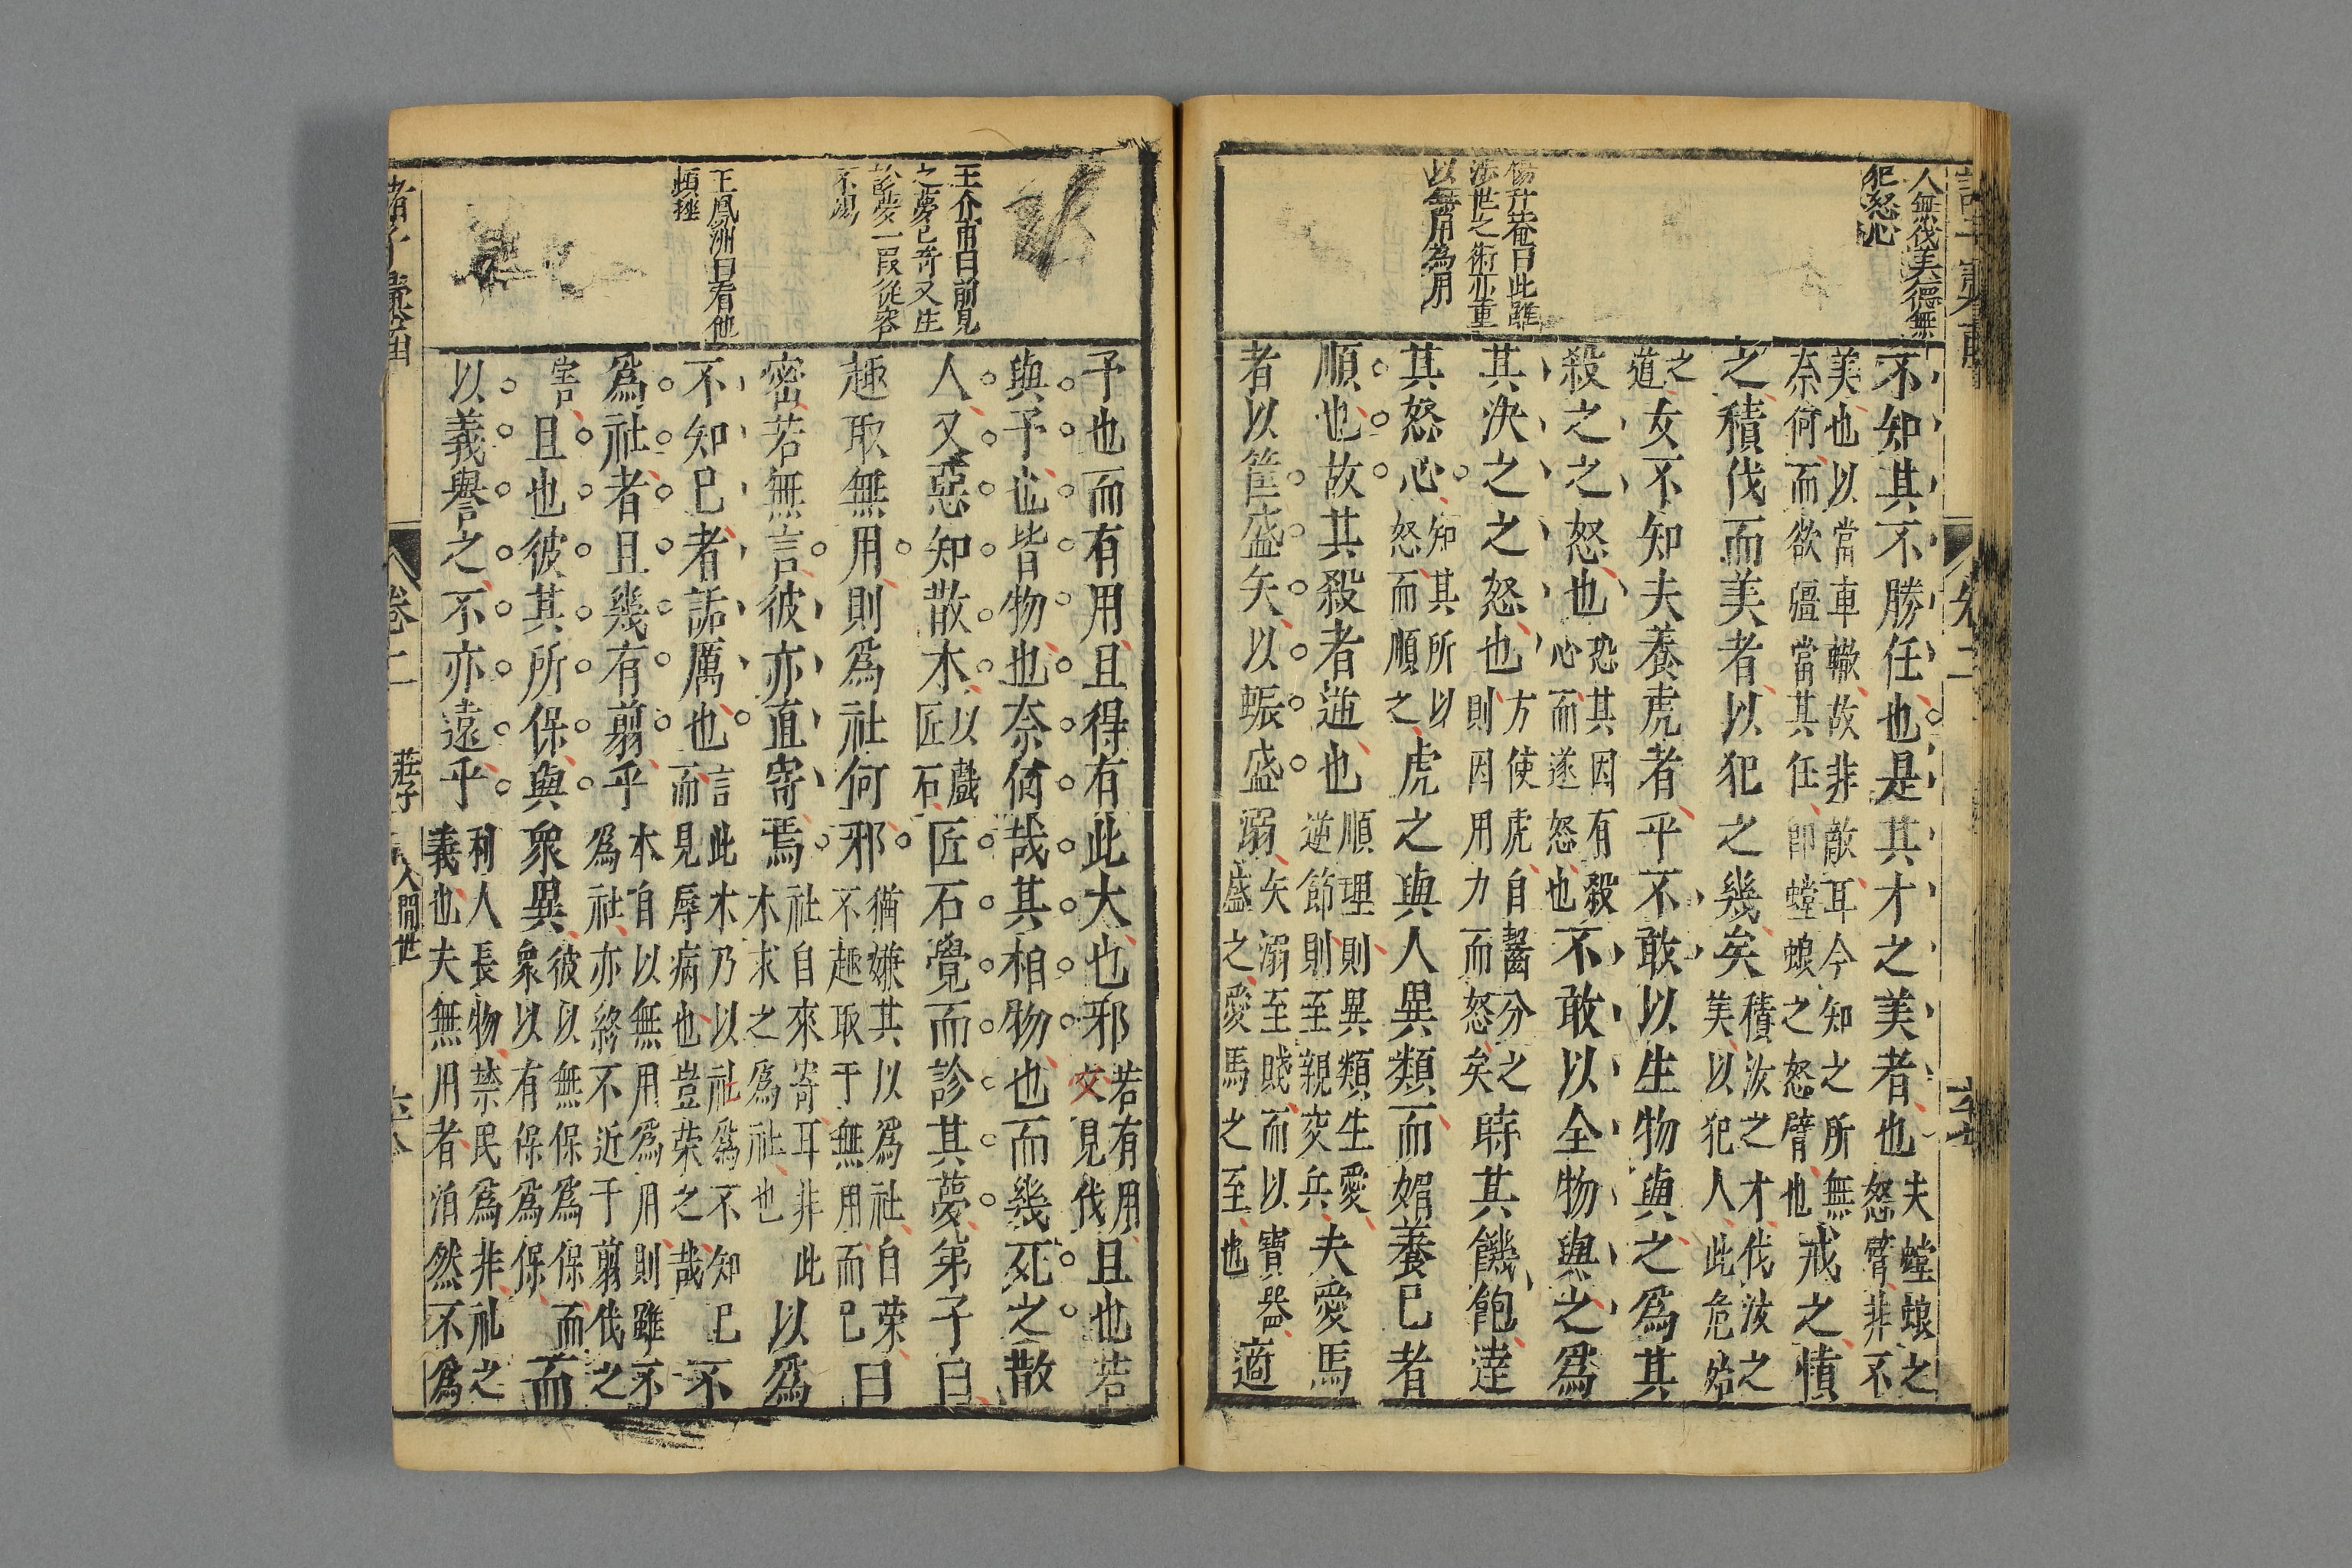 人無伐美德無
犯怒心
楊升菴曰此雖
涉世之術亦重
以無用為用
不知其不勝任也是其才之美者也夫螳蜋之怒臂非不
美也以當車轍故非敵耳今知之所無奈何而欲彊當其任即螳蜋之怒臂也戒之慎
之積伐而美者以犯之幾矣積汝之才伐汝之美以犯人此危殆
之道女不知夫養虎者乎不敢以生物與之爲其
殺之之怒也恐其因有殺心而遂怒也不敢以全物與之爲
其決之之怒也方使虎自齧分之則因用力而怒矣時其饑飽達
其怒心知其所以怒而順之虎之與人異類而媚養已者
順也故其殺者逆也順理則異類生愛逆節則至親交兵夫愛馬
者以筐盛矢以蜄盛溺矢溺至賤而以寶器盛之愛馬之至也適
王介甫曰前見
之夢已奇又生
於夢一段從容
不竭
王鳳洲曰看他
頓挫
予也而有用且得有此大也邪若有用交見伐且也若
與予也皆物也奈何哉其相物也而幾死之散
人又惡知散木以戲匠石匠石覺而診其夢弟子曰
趣取無用則爲社何邪猶嫌其以爲社自荣不趣取于無用而已曰
密若無言彼亦直寄焉社自來寄耳非此木求之爲社也以爲
不知已者詬厲也言此木乃以社爲不知已而見辱病也豈荣之哉不
爲社者且幾有翦乎本自以無用爲用則雖不爲社亦終不近于翦伐之
害且也彼其所保與衆異彼以無保爲保而衆以有保爲保而
以義譽之不亦遠乎利人長物禁民爲非社之義也夫無用者泊然不爲
諸子彙函 卷二 莊子 人間世 六十八